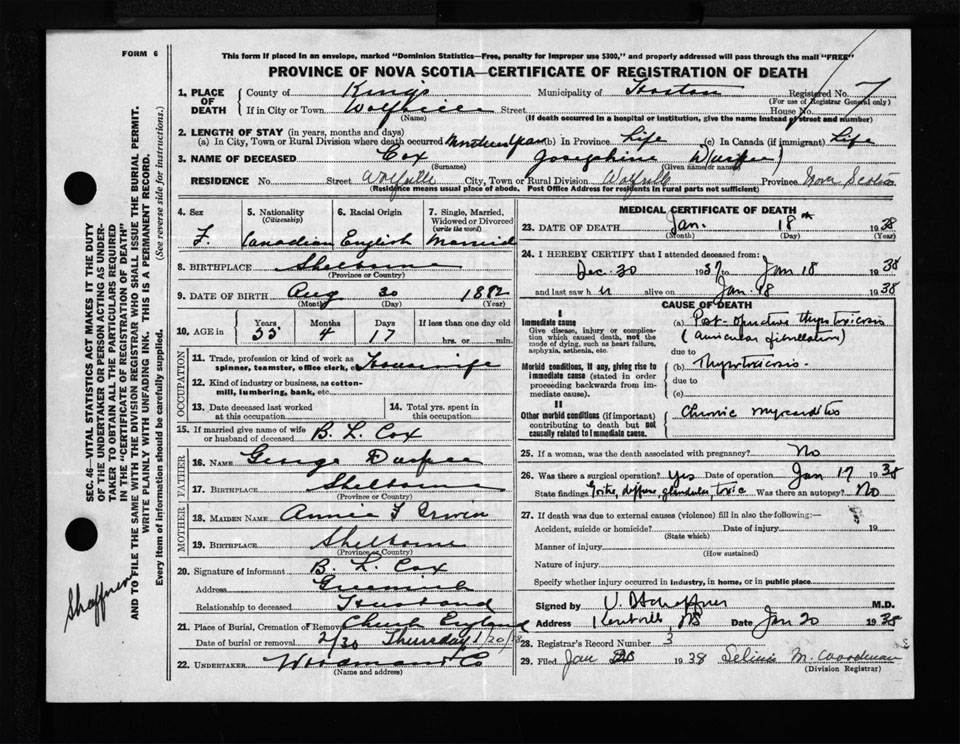 FORM 6
This form if placed in an envelope, marked "Dominion Statistics—Free, penalty for improper use $300," and properly addressed will pass through the mail "FREE"
PROVINCE OF NOVA SCOTIA—CERTIFICATE OF REGISTRATION OF DEATH
1. PLACE OF DEATH
County of Kings Municipality of Horton Registered No. 7
(For use of Registrar General only)
If in City or Town Street House No.
(Name) (If death occurred in a hospital or institution, give the name instead of street and number)
2. LENGTH OF STAY (in years, months and days)
(a) In City, Town or Rural Division where death occurred (b) In Province Life (c) In Canada (if immigrant) Life
3. NAME OF DECEASED Cox Josephine
(Surname) (Given name or names)
RESIDENCE No. Street Wolfville City, Town or Rural Division Wolfville Province Nova Scotia
(Residence means usual place of abode. Post Office Address for residents in rural parts not sufficient)
4. Sex F.
5. Nationality (Citizenship) Canadian
6. Racial Origin English
7. Single, Married, Widowed or Divorced (write the word) Married
8. BIRTHPLACE Shelburne
(Province or Country)
9. DATE OF BIRTH Aug 30 1882
(Month) (Day) (Year)
10. AGE in Years 55 Months 4 Days 17 If less than one day old hrs. or min.
OCCUPATION
11. Trade, profession or kind of work as spinner, teamster, office clerk, etc. Housewife
12. Kind of industry or business, as cotton-mill, lumbering, bank, etc.
13. Date deceased last worked at this occupation
14. Total yrs. spent in this occupation
15. If married give name of wife or husband of deceased B. L. Cox
FATHER
16. NAME George
17. BIRTHPLACE Shelburne
(Province or Country)
MOTHER
18. MAIDEN NAME Annie
19. BIRTHPLACE Shelburne
(Province or Country)
20. Signature of informant B. L. Cox
Address
Relationship to deceased Husband
21. Place of Burial, Cremation or Removal Church
Date of burial or removal Thursday 1/20/38
22. UNDERTAKER
(Name and address)
MEDICAL CERTIFICATE OF DEATH
23. DATE OF DEATH Jan. 18th 1938
(Month) (Day) (Year)
24. I HEREBY CERTIFY that I attended deceased from:
Dec. 30 1937 to Jan 18 1938
and last saw h alive on Jan. 18 1938
CAUSE OF DEATH
I
Immediate cause
Give disease, injury or complication which caused death, not the mode of dying, such as heart failure, asphyxia, asthenia, etc.
(a) Post-operative thyrotoxicosis
(auricular fibrillation)
due to
Morbid conditions, if any, giving rise to immediate cause (stated in order proceeding backwards from immediate cause).
(b) Thyrotoxicosis.
due to
(c)
II
Other morbid conditions (if important) contributing to death but not causally related to immediate cause.
Chronic myocarditis
25. If a woman, was the death associated with pregnancy? No
26. Was there a surgical operation? Yes Date of operation Jan 17 1938
State findings Goitre, diffuse glandular toxic Was there an autopsy? No
27. If death was due to external causes (violence) fill in also the following:—
Accident, suicide or homicide? Date of injury 19
(State which)
Manner of injury
(How sustained)
Nature of injury
Specify whether injury occurred in industry, in home, or in public place
Signed by M.D.
Address Kentville NS Date Jan 20 1938
28. Registrar's Record Number 3
29. Filed Jan 1938
(Division Registrar)
SEC. 46—VITAL STATISTICS ACT MAKES IT THE DUTY
OF THE UNDERTAKER OR PERSON ACTING AS UNDER-
TAKER TO OBTAIN ALL THE PARTICULARS REQUIRED
IN THE "CERTIFICATE OF REGISTRATION OF DEATH"
AND TO FILE THE SAME WITH THE DIVISION REGISTRAR WHO SHALL ISSUE THE BURIAL PERMIT.
WRITE PLAINLY WITH UNFADING INK. THIS IS A PERMANENT RECORD.
Every item of information should be carefully supplied. (See reverse side for instructions.)
Shaffner